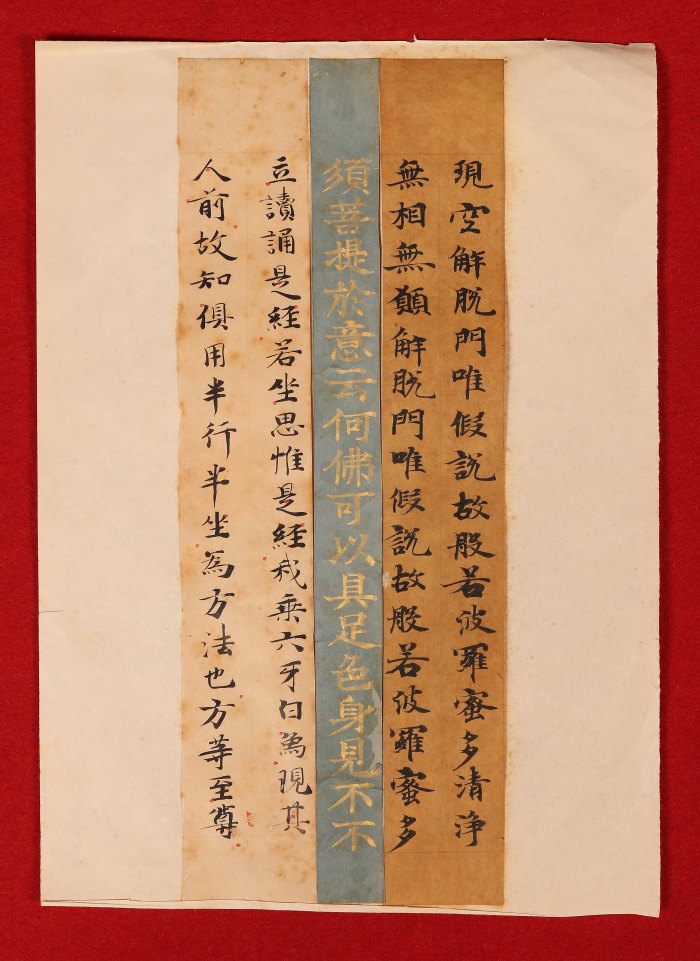 現空解脱門唯假説故般若波羅蜜多清浄
無相無願解脱門唯假説故般若波羅蜜多
須菩提於意云何佛可以具足色身見不不
立讀誦是経若坐思惟是経我乗六牙白象現其
人前故知俱用半行半坐為方法也方等至尊